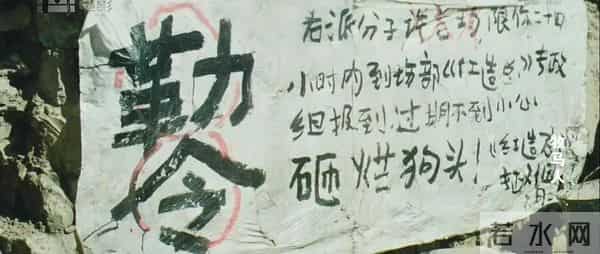 勒令
右派分子许灵均限你二十四
小时内到场部《红造总》专政
组报到过期不到小心
砸烂狗头!《红造
若水网